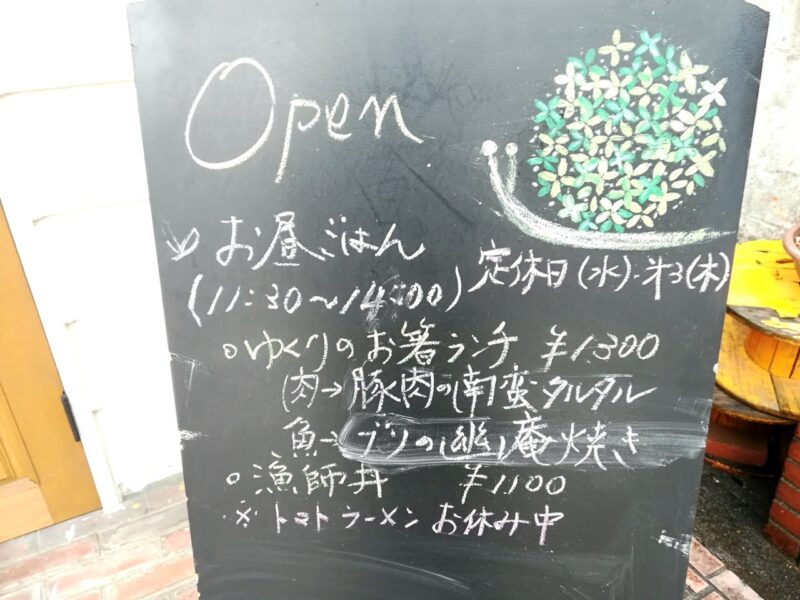 Open
お昼ごはん
(11:30〜14:00)
定休日(水)・第3(木)
○ゆくりのお箸ランチ ¥1300
(肉→豚肉の南蛮タルタル
魚→ブリの幽庵焼き
○漁師丼 ¥1100
※トマトラーメン お休み中